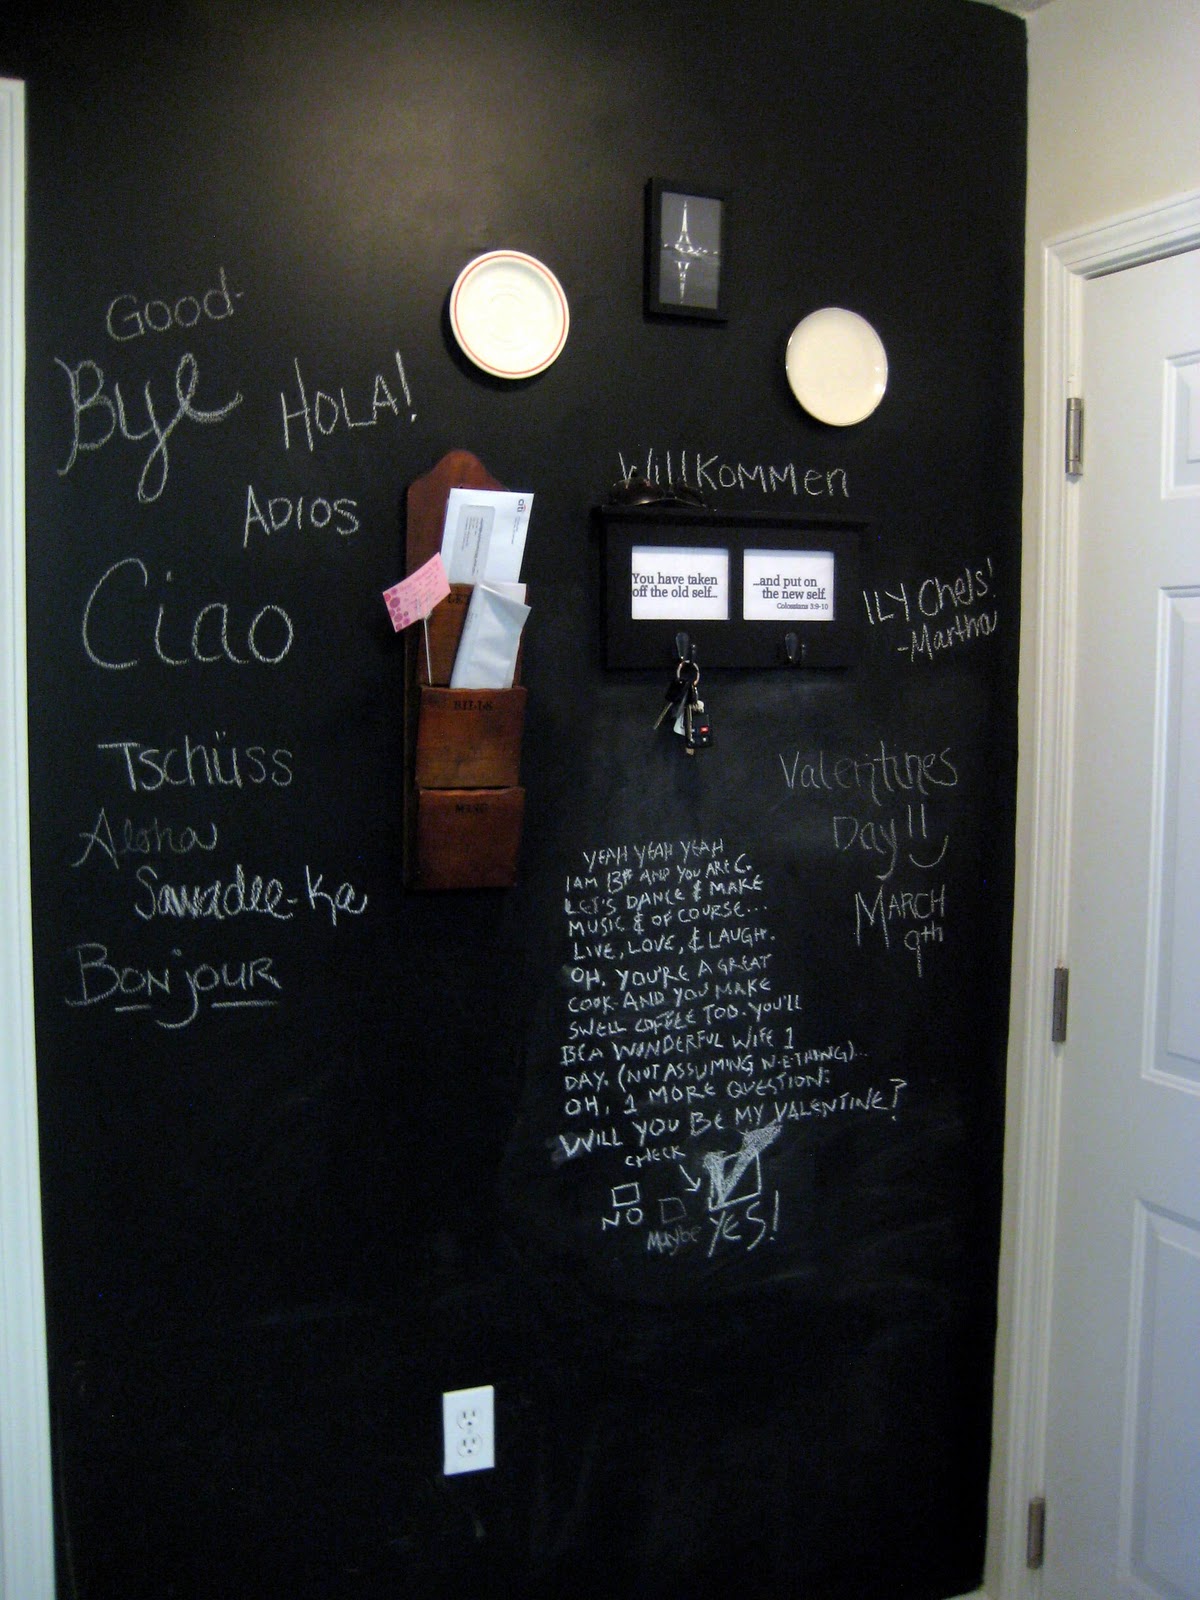 Good-
Bye
HOLA!
ADIOS
Ciao
Tschüss
Aloha
Sawadee-Ka
Bonjour
citi
BILLS
MISC
Willkommen
You have taken
off the old self...
...and put on
the new self.
Colossians 3:9-10
ILY Chels!
-Martha
Valentines
Day!!
MARCH
9th
YEAH YEAH YEAH
I AM B# AND YOU ARE C.
LET'S DANCE & MAKE
MUSIC & OF COURSE...
LIVE, LOVE, & LAUGH.
OH, YOU'RE A GREAT
COOK AND YOU MAKE
SWELL COFFEE TOO. YOU'LL
BE A WONDERFUL WIFE 1
DAY. (NOT ASSUMING N-E-THING)...
OH, 1 MORE QUESTION:
WILL YOU BE MY VALENTINE?
CHECK
NO
Maybe
YES!